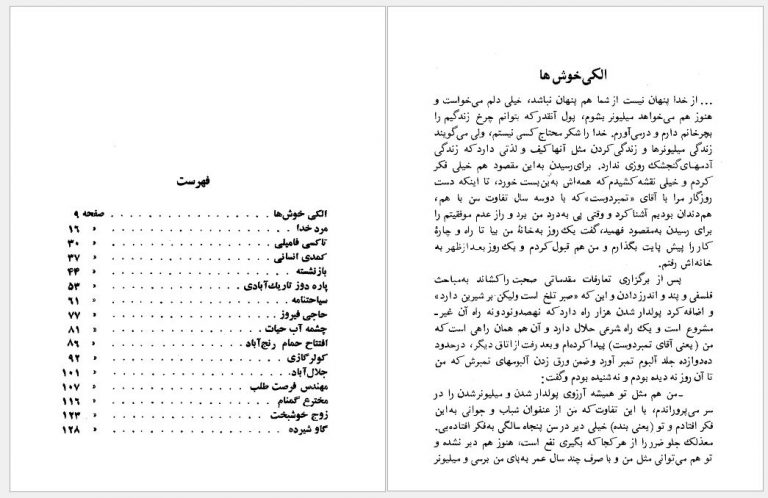 الکی‌خوش‌ها
... از خدا پنهان نیست از شما هم پنهان نباشد، خیلی دلم می‌خواست و
هنوز هم می‌خواهد میلیونر بشوم، پول آنقدر که بتوانم چرخ زندگیم را
بچرخانم دارم و درمی‌آورم. خدا را شکر محتاج کسی نیستم، ولی می‌گویند
زندگی میلیونرها و زندگی کردن مثل آنها کیف و لذتی دارد که زندگی
آدمهای گنجشک روزی ندارد. برای رسیدن به‌این مقصود هم خیلی فکر
کردم و خیلی نقشه کشیدم که همه‌اش به‌بن‌بست خورد، تا اینکه دست
روزگار مرا با آقای «تمبردوست» که با دوسه سال تفاوت سن با هم،
هم‌دندان بودیم آشنا کرد و وقتی پی به‌درد من برد و راز عدم موفقیتم را
برای رسیدن به‌مقصود فهمید، گفت یک روز به‌خانهٔ من بیا تا راه و چارهٔ
کار را پیش پایت بگذارم و من هم قبول کردم و یک روز بعد از ظهر به
خانه‌اش رفتم.
پس از برگزاری تعارفات مقدماتی صحبت را کشاند به‌مباحث
فلسفی و پند و اندرز دادن و این که «صبر تلخ است ولیکن بر شیرین دارد»
و اضافه کرد پولدار شدن هزار راه دارد که نهصدونودونه راه آن غیر-
مشروع است و یک راه شرعی حلال دارد و آن هم همان راهی است که
من (یعنی آقای تمبردوست) پیدا کرده‌ام و بعد رفت از اتاق دیگر، درحدود
ده‌دوازده جلد آلبوم تمبر آورد وضمن ورق زدن آلبومهای تمبرش که من
تا آن روز نه دیده بودم و نه‌شنیده بودم گفت:
ـ من هم مثل تو همیشه آرزوی پولدار شدن و میلیونرشدن را در
سر می‌پروراندم، با این تفاوت که من از عنفوان شباب و جوانی به‌این
فکر افتادم و تو (یعنی بنده) خیلی دیر در سن پنجاه سالگی به‌فکر افتاده‌یی.
معذلک جلو ضرر را از هر کجا که بگیری نفع است، هنوز هم دیر نشده و
تو هم می‌توانی مثل من و با صرف چند سال عمر به‌پای من برسی و میلیونر
فهرست
الکی خوش‌ها . . . . . . . . . . . . صفحه ۹
مرد خدا . . . . . . . . . . . . » ۱۶
تاکسی فامیلی . . . . . . . . . . . . » ۳۰
کمدی انسانی . . . . . . . . . . . . » ۳۷
بازنشسته . . . . . . . . . . . . » ۴۴
پاره دوز تاریک‌آبادی . . . . . . . . . . . . » ۵۳
سیاحتنامه . . . . . . . . . . . . » ۶۱
حاجی فیروز . . . . . . . . . . . . » ۷۷
چشمه آب حیات . . . . . . . . . . . . » ۸۱
افتتاح حمام رنج‌آباد . . . . . . . . . . . . » ۸۶
کولرگازی . . . . . . . . . . . . » ۹۲
جلال‌آباد . . . . . . . . . . . . » ۱۰۱
مهندس فرصت طلب . . . . . . . . . . . . » ۱۰۷
مخترع گمنام . . . . . . . . . . . . » ۱۱۶
زوج خوشبخت . . . . . . . . . . . . » ۱۲۳
گاو شیرده . . . . . . . . . . . . » ۱۲۸